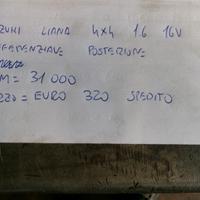 ZUKI LIANA 4X4 1.6 16V
FERENZIALE POSTERIORE
M = 31000
EZZO = EURO 320 SPEDITO